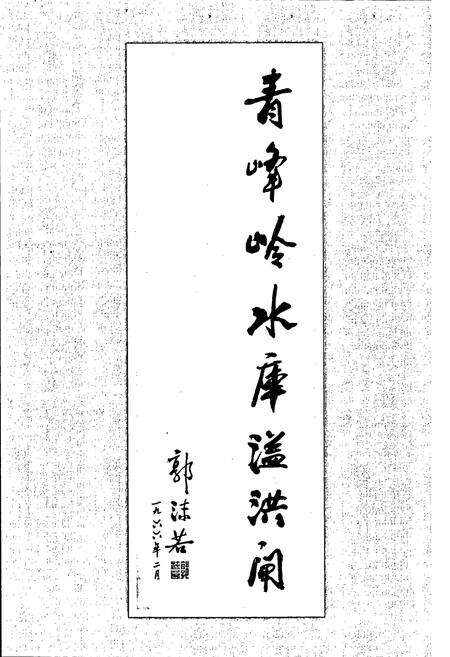 青峰岭水库溢洪闸
郭沫若
一九六六年二月